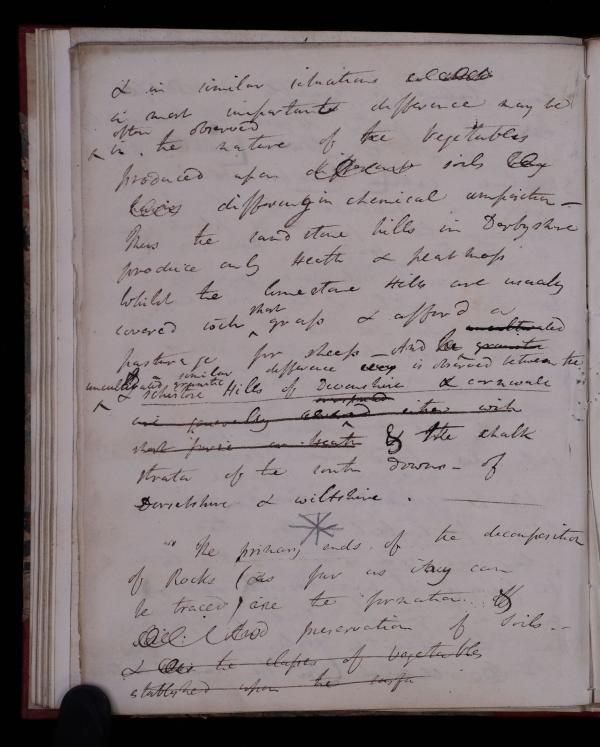 & in similar situations
a most important difference may be
often observed
in the nature of the Vegetables
produced upon different soils
differing in chemical composition –
Thus the sandstone hills in Derbyshire
produce only Heath & peat moss
Whilst the limestone Hills are usually
short
covered with grass & afford a
pasturage for sheep – And
similar difference is observed between the
uncultivated
& schistose Hills of Devonshire & cornwall
are generally covered either with
short furze or heath & the chalk
strata of the south downs – of
Dorsetshire & wiltshire .
" The primary ends of the decomposition
of Rocks (as far as they can
be traced) are the formation
And preservation of Soils –
& the classes of vegetables
established upon the